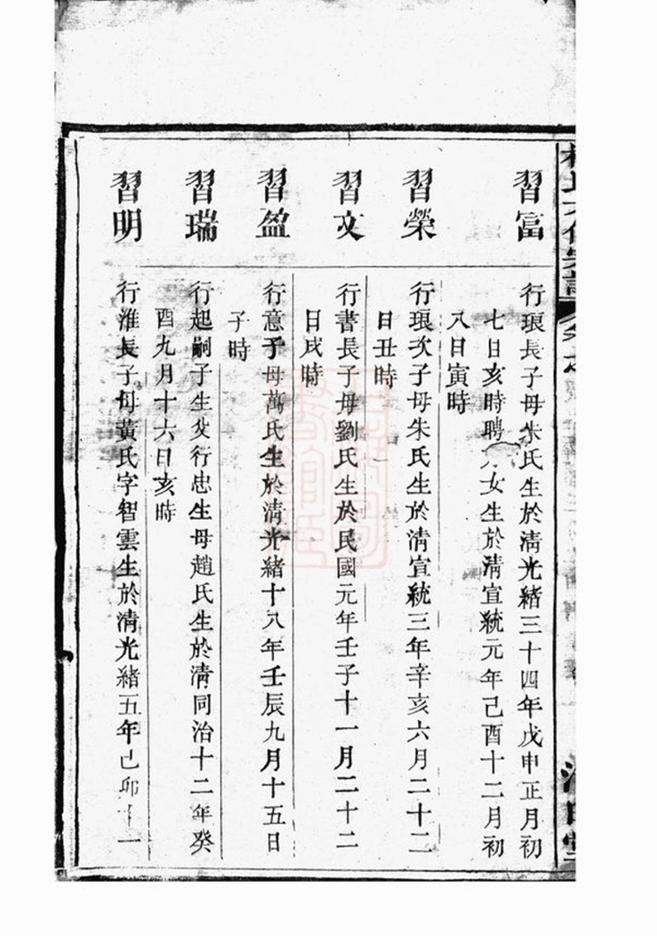 習富
行珢長子母朱氏生於清光緒三十四年戊申正月初
七日亥時聘 女生於清宣統元年己酉十二月初
八日寅時
習榮
行珢次子母朱氏生於清宣統三年辛亥六月二十二
日丑時
習文
行書長子母劉氏生於民國元年壬子十一月二十二
日戌時
習盈
行意子母萬氏生於清光緒十八年壬辰九月十五日
子時
習瑞
行起嗣子生父行忠生母趙氏生於清同治十二年癸
酉九月十六日亥時
習明
行淮長子母黃氏字智雲生於清光緒五年己卯十一